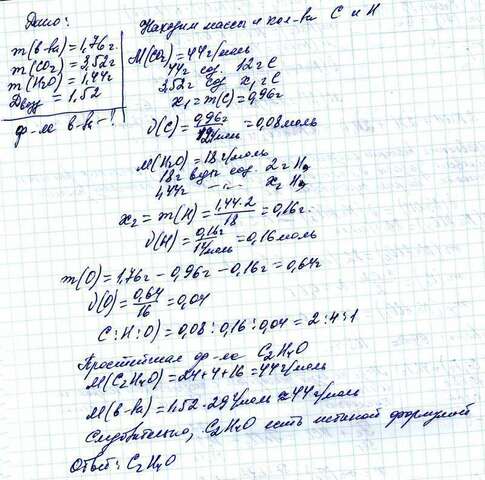 Дано:
m(в-ва)=1,76г.
m(CO₂)=3,52г
m(H₂O)=1,44г
Dвозд=1,52
ф-ла в-ва-?
Находим массы и кол-ва C и H
M(CO₂)=44г/моль
44г сод. 12г C
3,52г сод x₁г C
x₁=m(C)=0,96г
ν(C)=0,96г/12г/моль=0,08моль
M(H₂O)=18г/моль
18г воды сод. 2г H₂
1,44г -"- x₂ H₂
x₂=m(H)=1,44·2/18=0,16г.
ν(H)=0,16г/1г/моль=0,16моль
m(O)=1,76г-0,96г-0,16г=0,64г
ν(O)=0,64/16=0,04
C:H:O)=0,08:0,16:0,04=2:4:1
Простейшая ф-ла C₂H₄O
M(C₂H₄O)=24+4+16=44г/моль
M(в-ва)=1.52·29г/моль≈44г/моль
Следовательно, C₂H₄O есть истиной формулой
Ответ: C₂H₄O